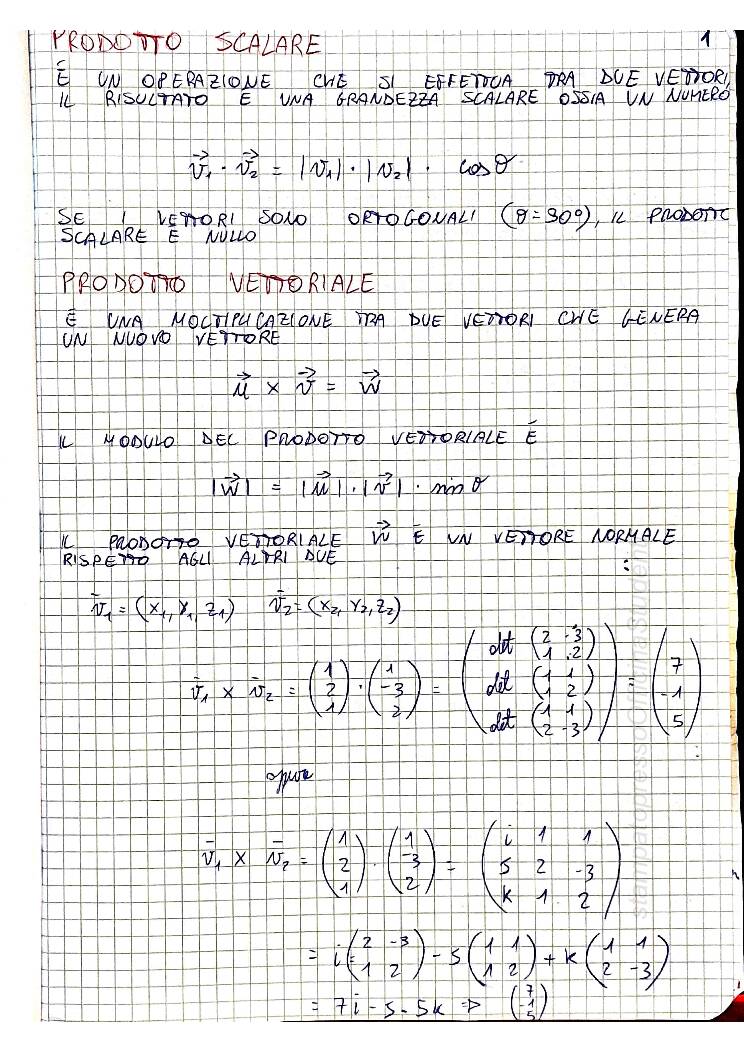 PRODOTTO SCALARE 1
É UN OPERAZIONE CHE SI EFFETTUA TRA DUE VETTORI,
IL RISULTATO E UNA GRANDEZZA SCALARE OSSIA UN NUMERO
v₁ · v₂ = |v₁| · |v₂| · cosθ
SE I VETTORI SONO ORTOGONALI (θ = 90°), IL PRODOTTO
SCALARE E NULLO
PRODOTTO VETTORIALE
É UNA MOLTIPLICAZIONE TRA DUE VETTORI CHE GENERA
UN NUOVO VETTORE
u × v = w
IL MODULO DEL PRODOTTO VETTORIALE É
|w| = |u| · |v| · sinθ
IL PRODOTTO VETTORIALE w É UN VETTORE NORMALE
RISPETTO AGLI ALTRI DUE :
v₁ = (x₁, y₁, z₁) v₂ = (x₂, y₂, z₂)
v₁ × v₂ = (1 2 1) · (1 -3 2) = (det (2 -3 1 2) det (1 1 1 2) det (1 1 2 -3)) = (7 -1 5)
oppure
v₁ × v₂ = (1 2 1) · (1 -3 2) = (i 1 1
5 2 -3
k 1 2)
= i (2 -3 1 2) - 5 (1 1 1 2) + k (1 1 2 -3)
= 7i - 5 - 5k ⇒ (7 -1 5)